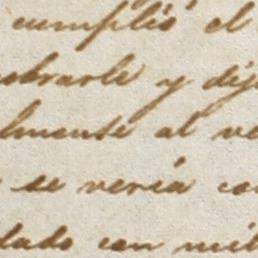 cumplió el
brarle y dij
lmente al ve
se vería co
dado con mil